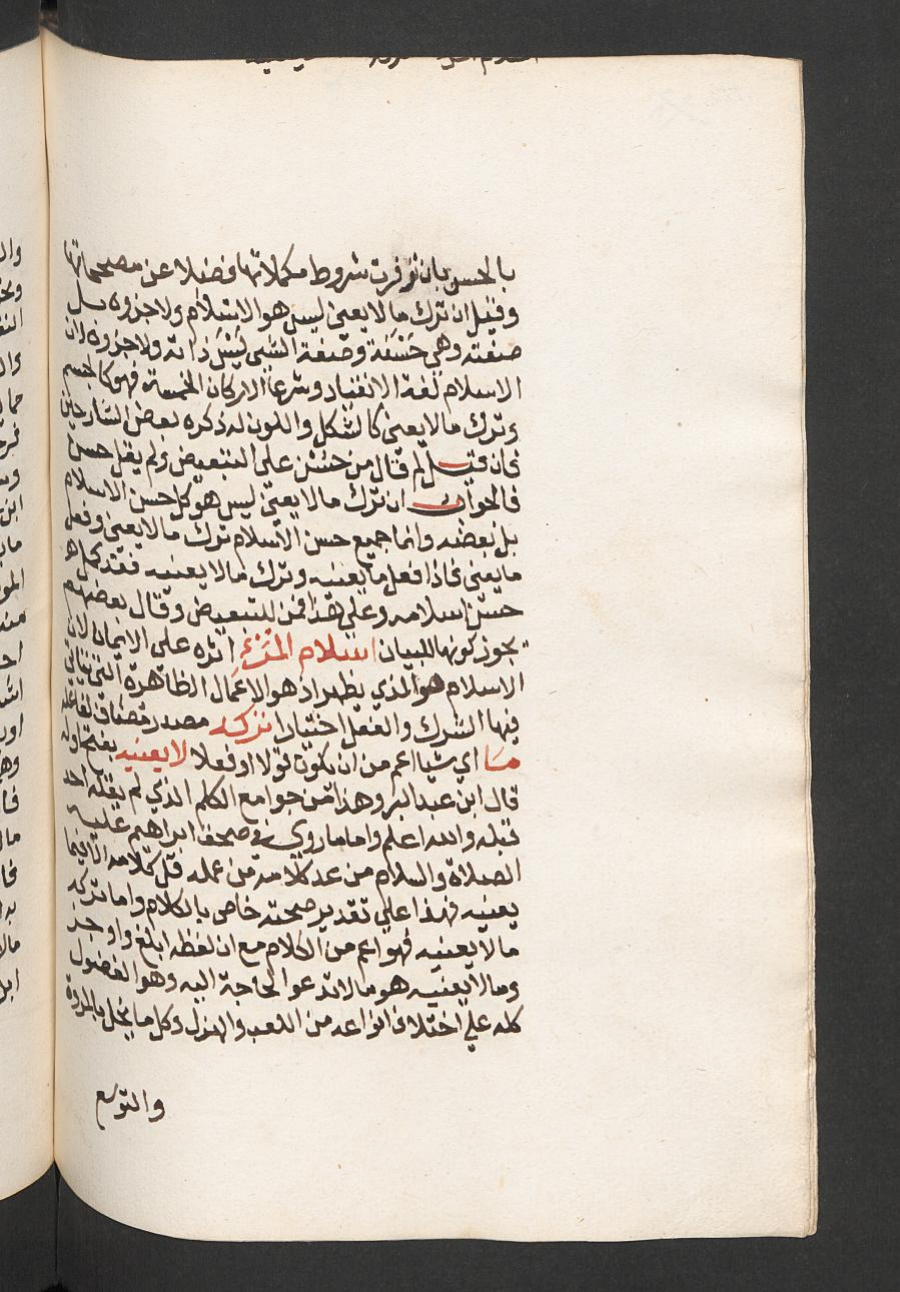 بالحسن بان توفرت شروط مكملاتها فضلا عن مصححاتها
وقيل ان ترك ما لا يعنى ليس هو الاسلام ولا جزوه بل
صفته وهي حسنة وصفة الشى ليس ذاته ولا جزوه لان
الاسلام لغة الانقياد وشرعا الاركان الخمسة فهو كالجسم
وترك ما لا يعنى كالشكل واللون له ذكره بعض الشارحين
فان قيل لم قال من حسن على التبعيض ولم يقل حسن
فالجواب ان ترك ما لا يعنى ليس هو كل حسن الاسلام
بل بعضه وانما جميع حسن الاسلام ترك ما لا يعنى وفعل
ما يعنى فاذا فعل ما يعنيه وترك ما لا يعنيه فقد كمل
حسن اسلامه وعلى هذا فمن للتبعيض وقال بعضهم
يجوز كونها للبيان اسلام المرء اثره على الايمان لان
الاسلام هو الذي يظهر اذ هو الاعمال الظاهرة التي يتاتى
فيها الترك والفعل اختيارا تركه مصدر مضاف لفاعله
ما اي شيا اعم من ان يكون قولا او فعلا لا يعنيه بفتح اوله
قال ابن عبد البر وهذا من جوامع الكلم الذي لم يقله احد
قبله والله اعلم واما ما روي في صحف ابراهيم عليه
الصلاة والسلام من عد كلامه من عمله قل كلامه الا فيما
يعنيه فهذا على تقدير صحته خاص بالكلام واما تركه
ما لا يعنيه فهو اعم من الكلام مع ان لفظه ابلغ واوجز
وما لا يعنيه هو ما لا تدعو الحاجة اليه وهو الفضول
كله على اختلاف انواعه من اللعب والهزل وكل ما يخل بالمروة
والتوسع